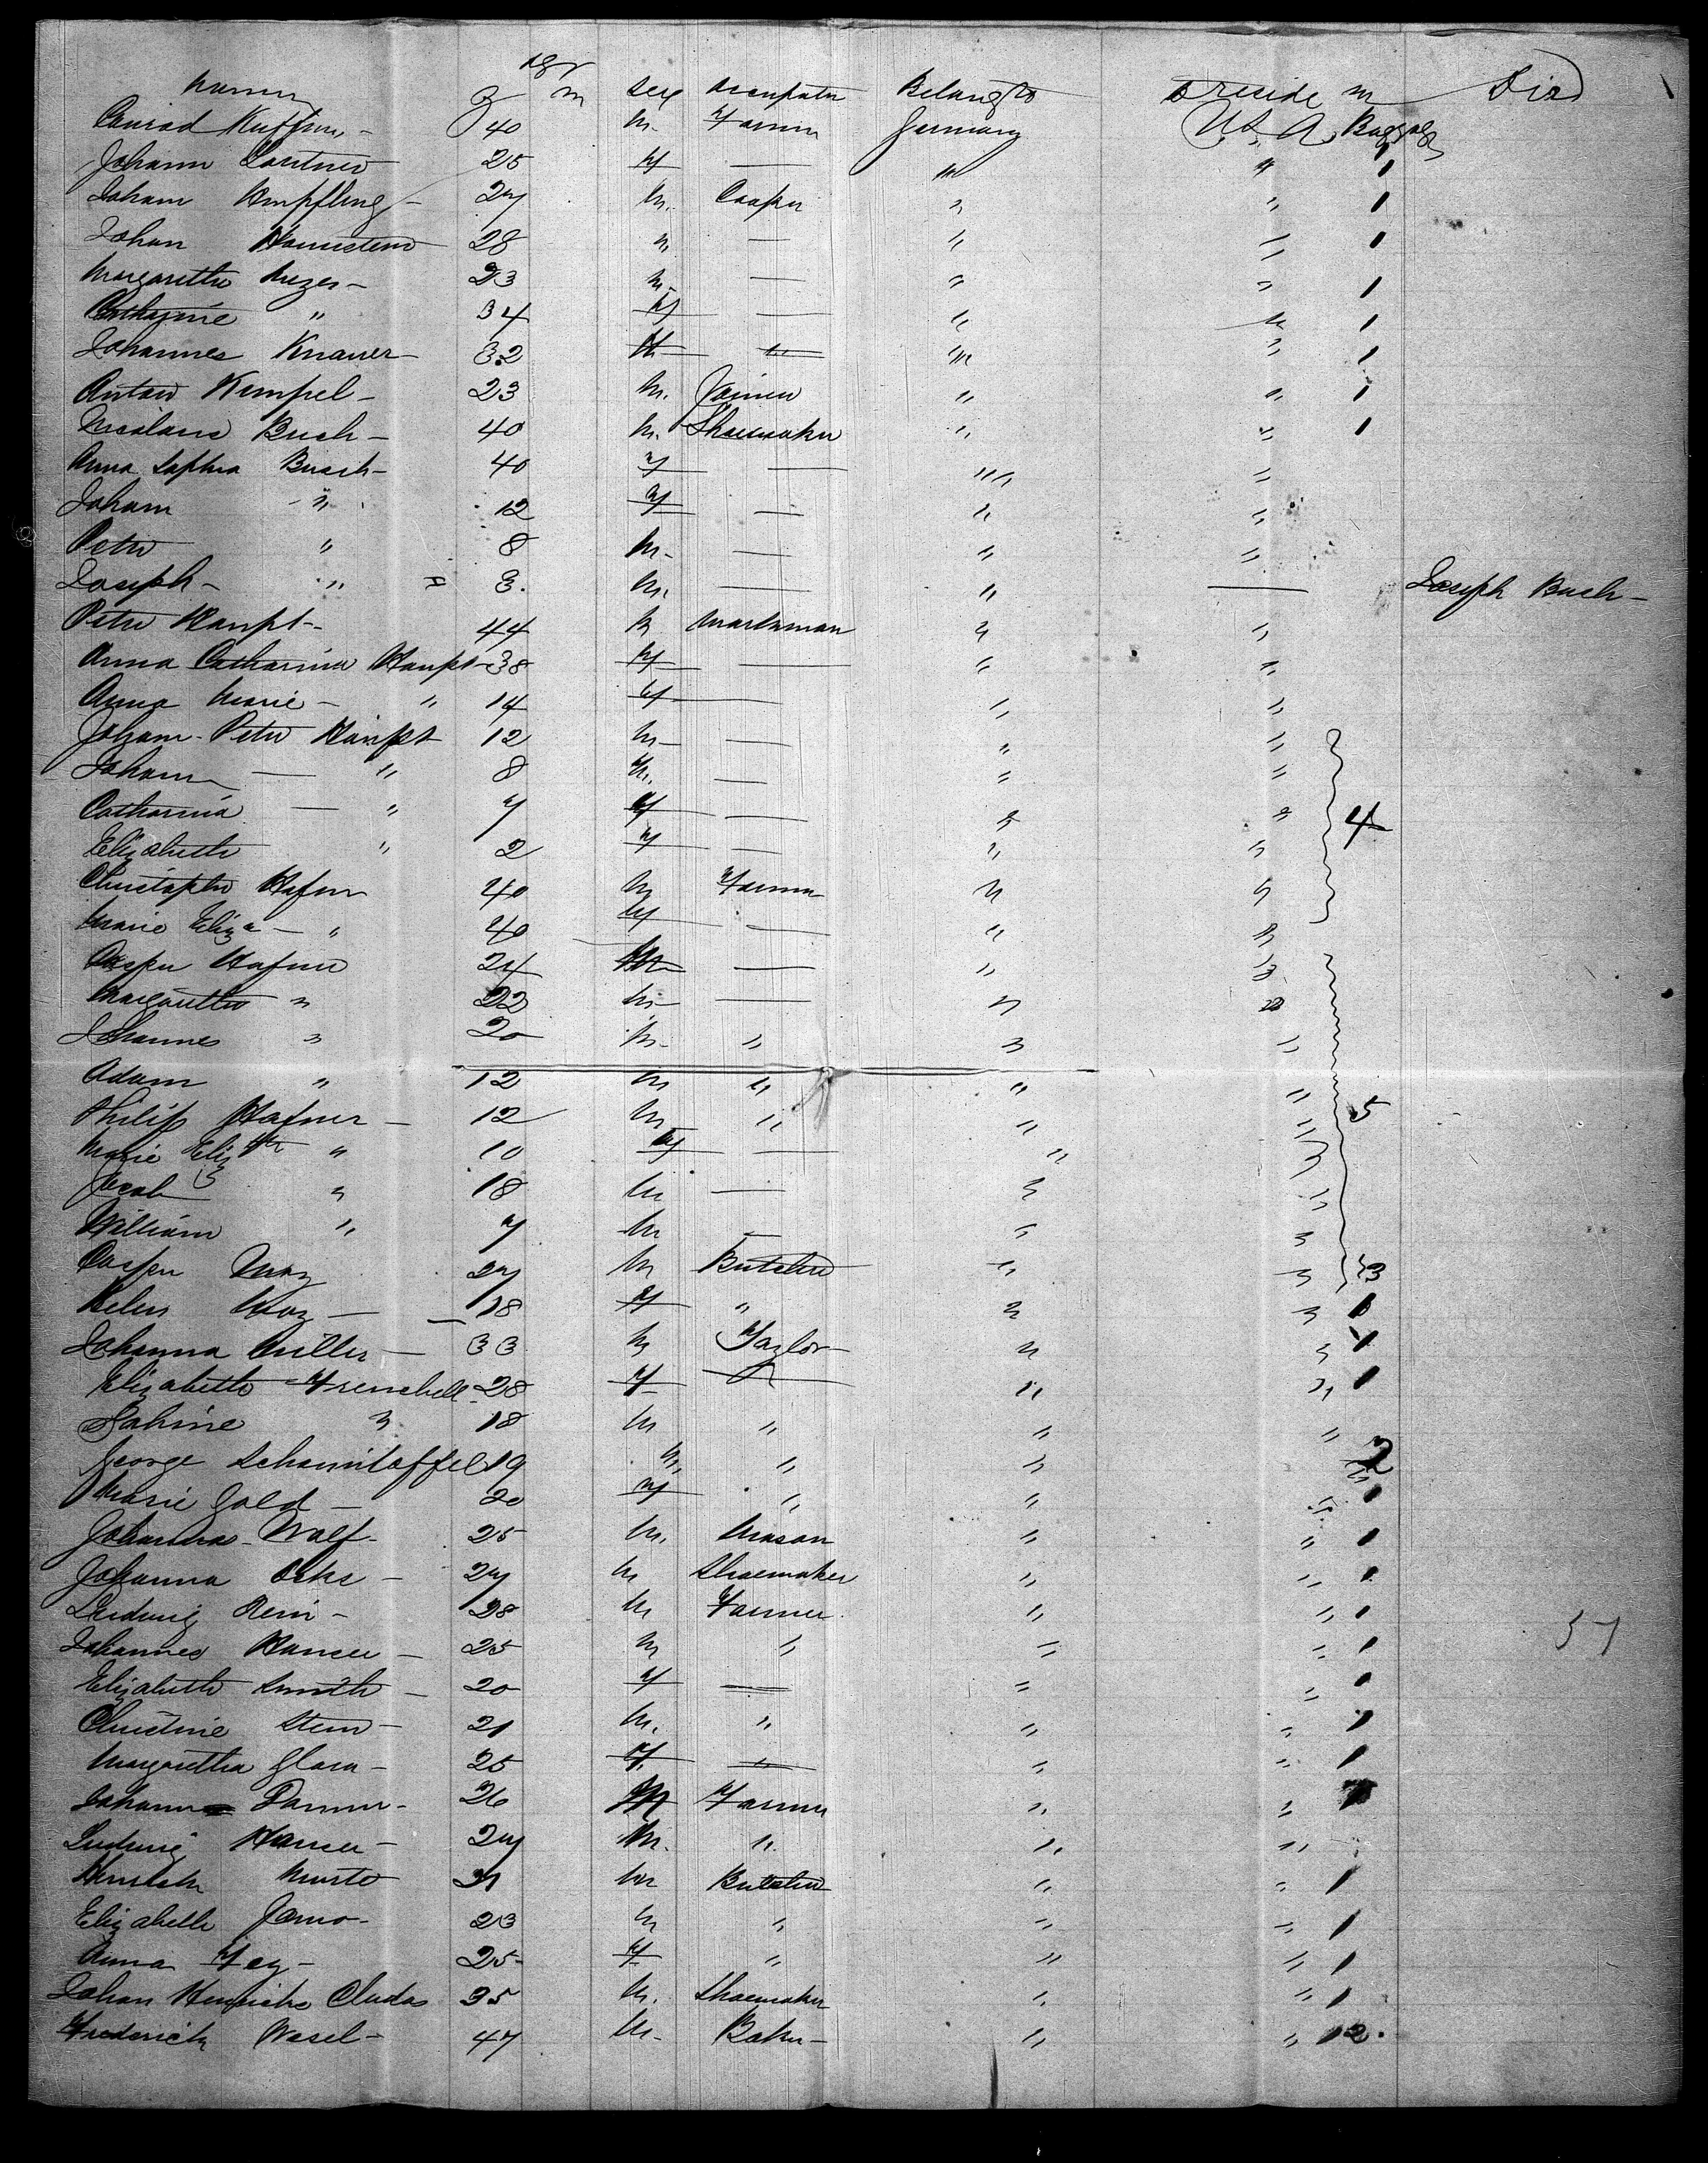 Names Age y m Sex Occupation Belong to to reside in Died
Conrad - 40 M. Farmer Germany U S A Baggage
Johann 25 F — " " 1
Johann 27 M. Cooper " " 1
Johan 28 " — " " 1
Margaretha - 23 M. — " " 1
Catharine " 34 F — " " 1
Johannes Knauer - 32 M " " " 1
Anton Kempel - 23 M. Joiner " " 1
Nicolaus Buch - 40 M. Shoemaker " " 1
Anna Sophia Busch - 40 F — " "
Johann " 12 F — " "
Peter " 8 M. — " "
Joseph - " 3. M. — " — Joseph Buch -
Peter Haupt - 44 M Workman " "
Anna Catharina Haupt - 38 F — " "
Anna Marie - " 14 F — " "
Johann Peter Haupt 12 M — " "
Johann — " 8 M. — " "
Catharina — " 7 F — " " 4
Elizabeth " 2 F — " "
Christopher Hafner 40 M Farmer " "
Marie Eliza - " 40 F — " "
Casper Hafner 24 M — " "
Margaretha " 22 M — " "
Johannes " 20 M. " " "
Adam " 12 M " " "
Philip Hafner - 12 M " " " 5
Marie Elizth " 10 F — " "
Jacob " 18 M — " "
William " 7 M — " "
Casper May 27 M Butcher " " 3
Helen May — 18 F " " " 1
Johanna Miller — 33 M Taylor " " 1
Elizabeth Frenchell - 28 F — " " 1
Sabine " 18 M " " "
George Schamitoffel 19 M. " " " 2
Marie Gold - 20 F " " " 1
Johannas Wolf - 25 M. Mason " " 1
Johanna - 27 M Shoemaker " " 1
Ludwig Rein - 28 M Farmer " " 1
Johannes Hansen - 25 M " " " 1
Elizabeth Smith - 20 F — " " 1
Christine Stein - 21 M. " " " 1
Margaretha - 25 F " " " 1
Johann Danner - 26 M Farmer " " 1
Ludwig Hansen - 27 M. " " "
21 M Butcher " " 1
Elizabeth - 23 M " " " 1
Anna Fey - 25 F " " " 1
Johan Heinrich Cludas 35 M. Shoemaker " " 1
Frederick Wesel - 47 M. Baker - " " 2.
51